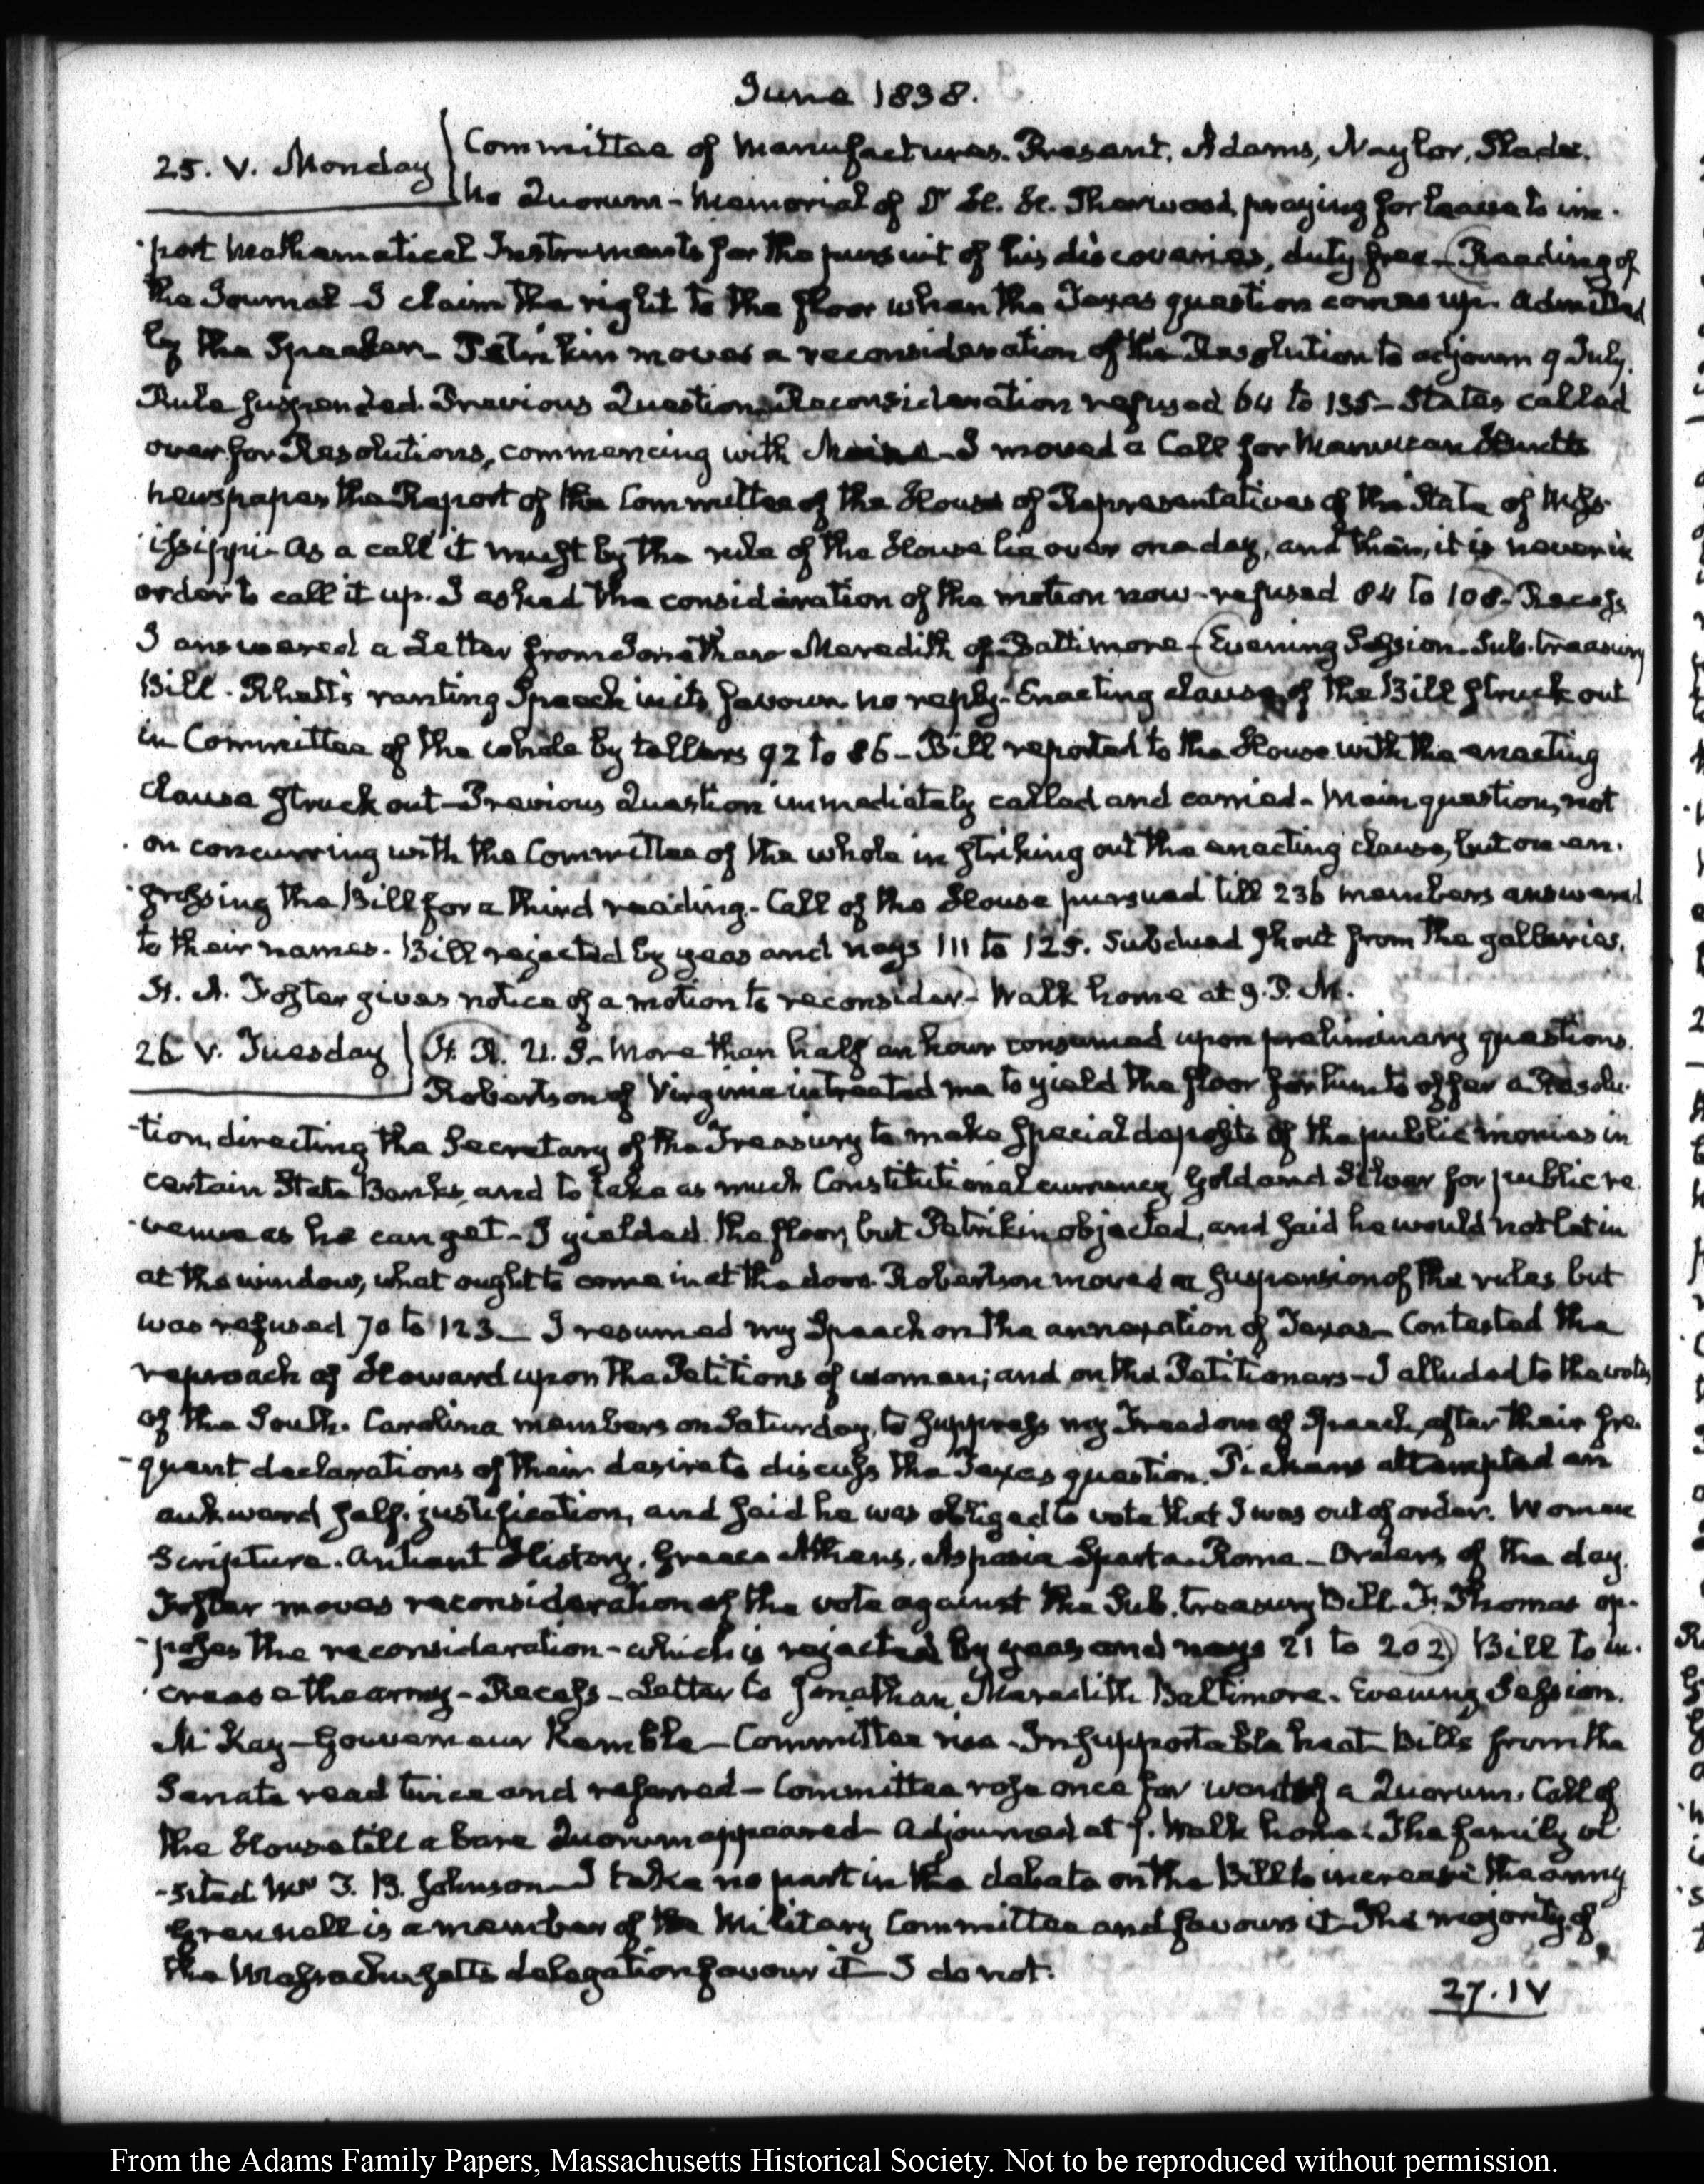 June 1838.
25. V. Monday
Committee of Manufactures. Present, Adams, Naylor, Slade.
No Quorum - Memorial of Dr H. H. Sherwood praying for leave to im-
-port Mathematical Instruments for the pursuit of his discoveries, duty free - Reading of
the Journal - I claim the right to the floor when the Texas question comes up. Admitted
by the Speaker - Petrikin moves a reconsideration of the Resolution to adjourn 9 July.
Rule suspended. Previous Question - Reconsideration refused 64 to 135 - States called
over for Resolutions, commencing with Maine - I moved a Call for
newspaper the Report of the Committee of the House of Representatives of the State of Miss-
-issippi - As a call it must by the rule of the House lie over one day, and then, it is never in
order to call it up. I asked the consideration of the motion now - refused 84 to 108 - Recess
I answered a Letter from Jonathan Meredith of Baltimore - Evening Session. Sub-treasury
Bill - Rhett's ranting Speech in its favour. no reply - Enacting clause of the Bill struck out
in Committee of the whole by tellers 92 to 86 - Bill reported to the House with the enacting
clause struck out - Previous Question immediately called and carried - Main question, not
on concurring with the Committee of the whole in striking out the enacting clause, but on en-
-grossing the Bill for a third reading - Call of the House pursued till 236 members answered
to their names. Bill rejected by yeas and nays 111 to 125. Subdued shout from the galleries.
H. A. Foster gives notice of a motion to reconsider - Walk home at 9. P. M.
26 V. Tuesday
H. R. U. S. - More than half an hour consumed upon preliminary questions.
Robertson of Virginia intreated me to yield the floor for him to offer a Resolu-
-tion, directing the Secretary of the Treasury to make special deposits of the public monies in
certain State Banks, and to take as much Constitutional currency Gold and Silver for public re-
-venue as he can get - I yielded the floor, but Petrikin objected, and said he would not let in
at the window, what ought to come in at the door. Robertson moved a suspension of the rules, but
was refused 70 to 123 - I resumed my Speech on the annexation of Texas - Contested the
reproach of Howard upon the Petitions of women; and on the Petitioners - I alluded to the votes
of the South-Carolina members on Saturday, to suppress my Freedom of Speech, after their fre-
-quent declarations of their desire to discuss the Texas question. Pickens attempted an
aukward half-justification, and said he was obliged to vote that I was out of order. Women
Scripture. Antient History. Greece Athens, Aspasia Sparta - Rome - Orders of the day.
Foster moves reconsideration of the vote against the Sub-treasury Bill. F. Thomas op-
-poses the reconsideration - which is rejected by yeas and nays 21 to 202 Bill to in-
-crease the army - Recess - Letter to Jonathan Meredith Baltimore - Evening Session.
McKay - Gouverneur Kemble - Committee rise - Insupportable heat - Bills from the
Senate read twice and referred - Committee rose once for want of a Quorum. Call of
the House till a bare Quorum appeared - Adjourned at 7. Walk home - The family vi-
-sited Mrs T. B. Johnson - I take no part in the debate on the Bill to increase the army
Grennell is a member of the Military Committee and favours it - The majority of
the Massachusetts delegation favour it - I do not.
27. IV
From the Adams Family Papers, Massachusetts Historical Society. Not to be reproduced without permission.